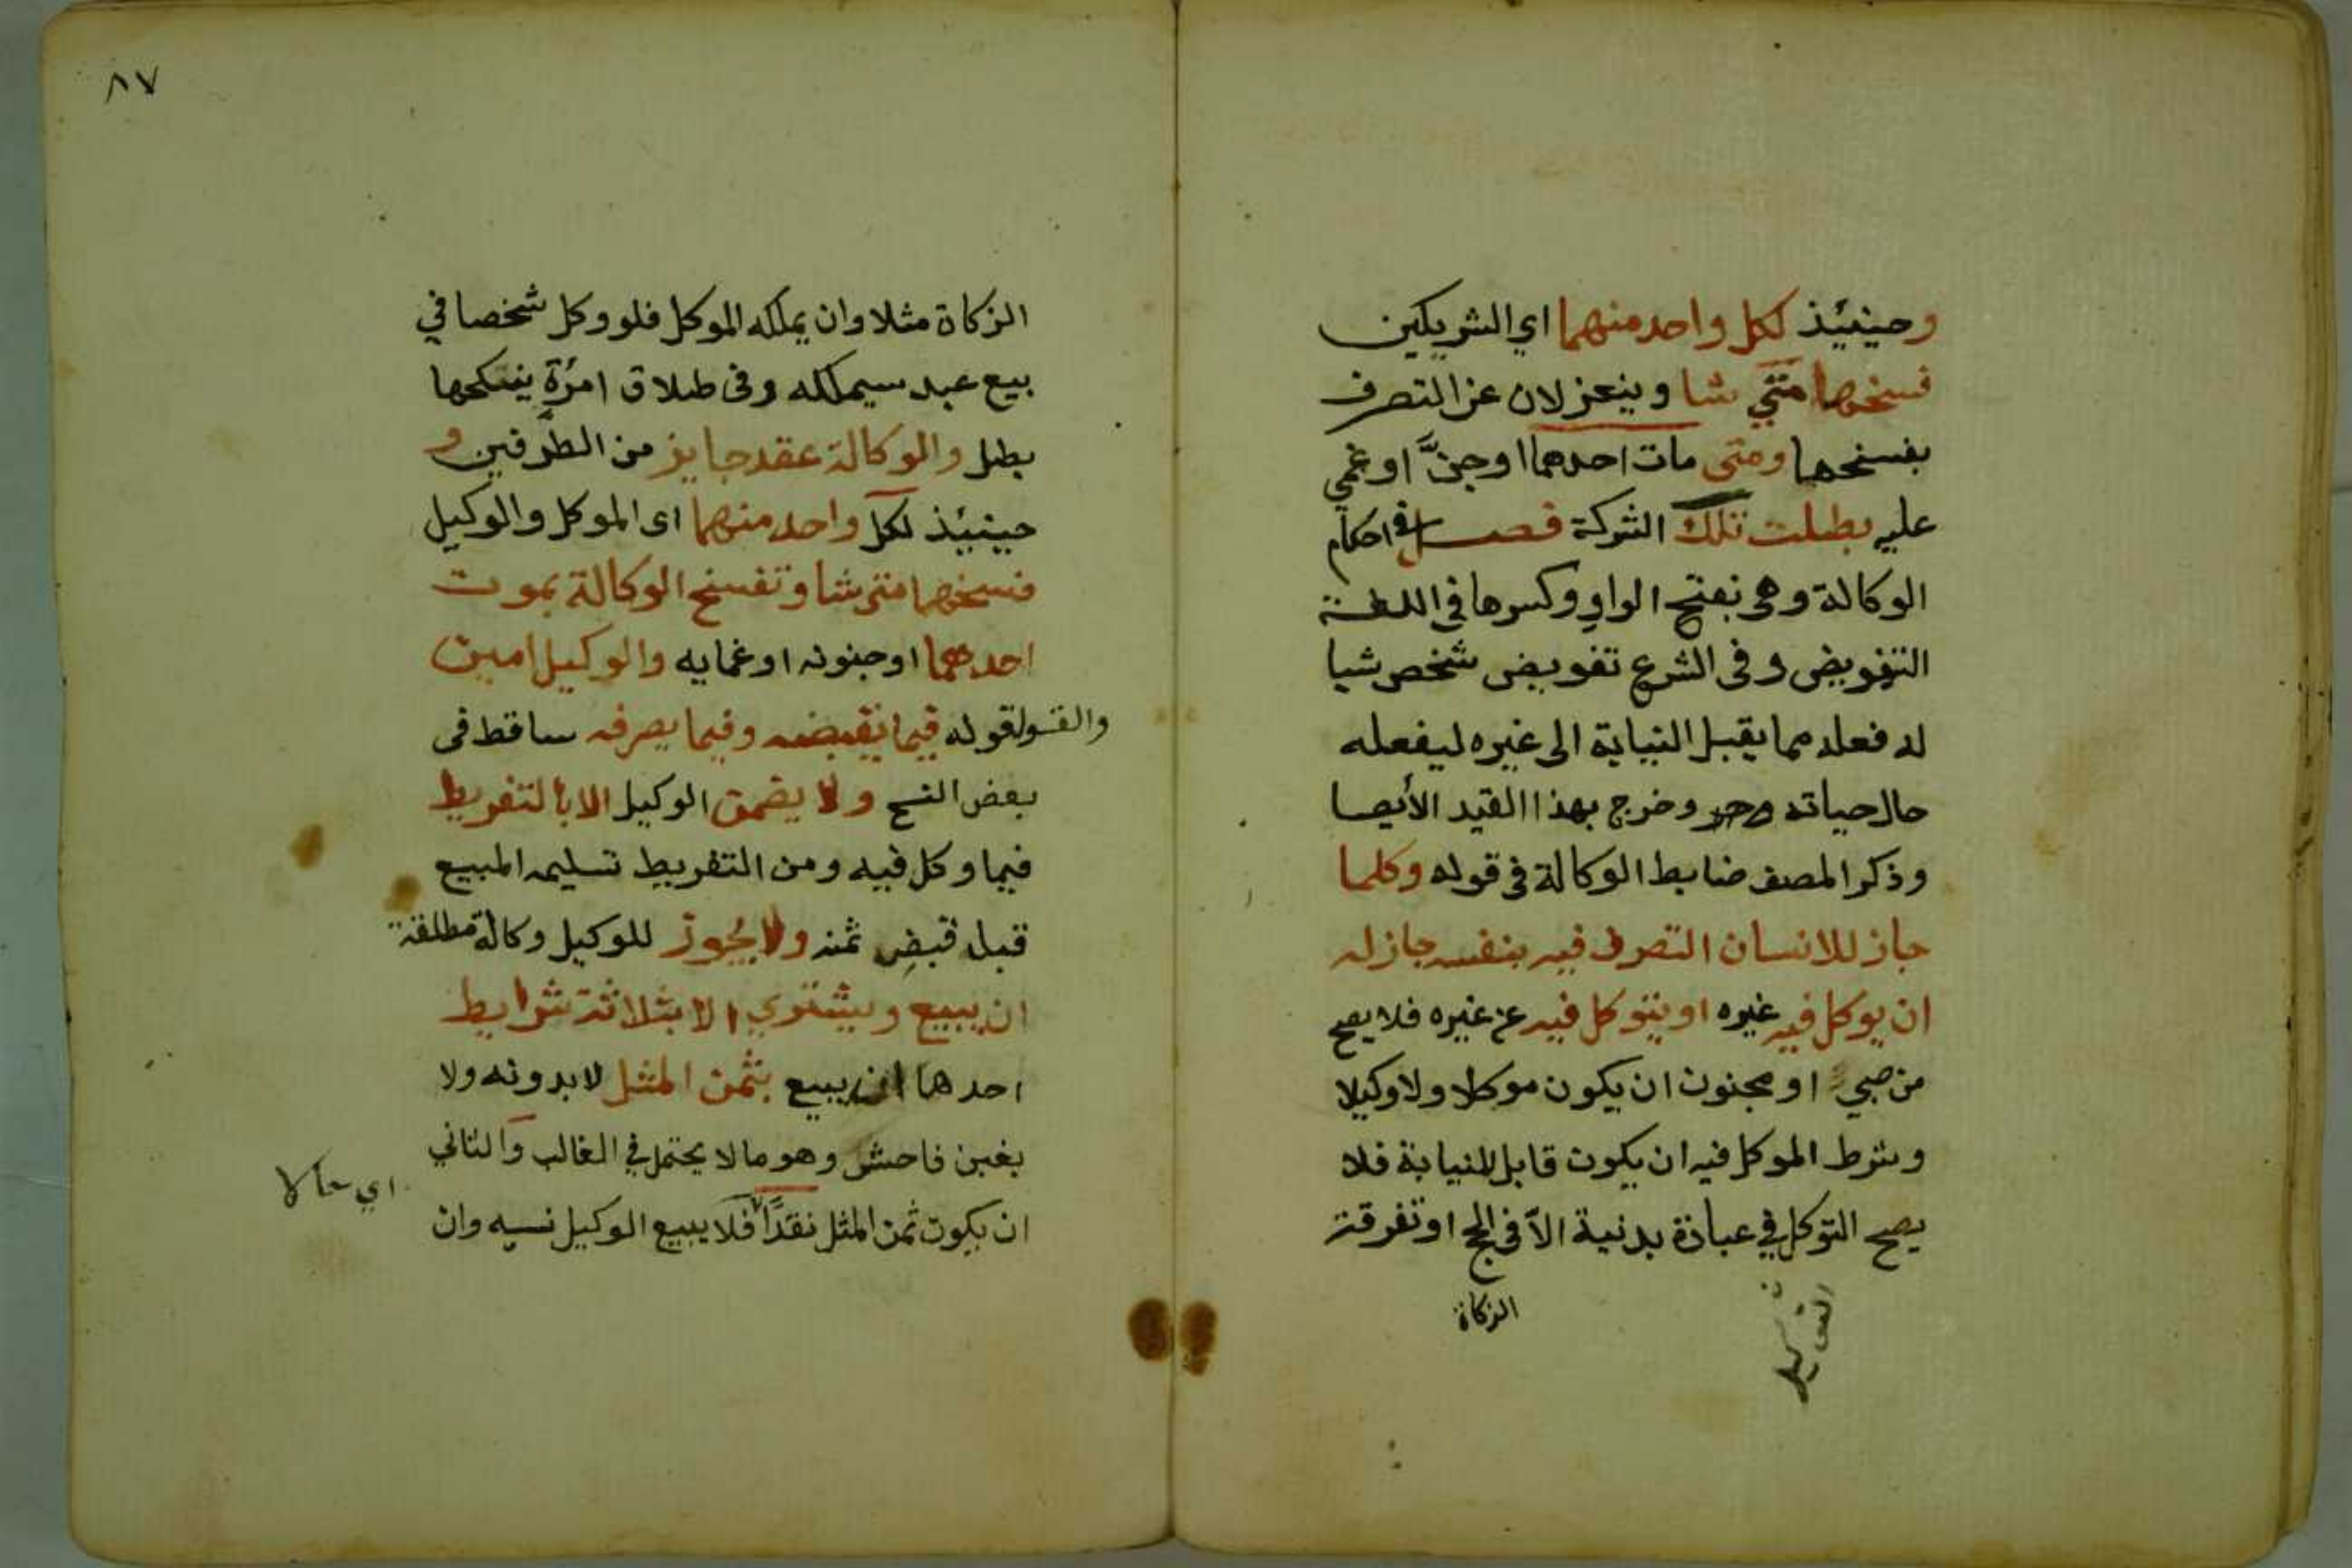 وحينئيذ لكل واحد منهما اي الشريكين
فسخها متي شا وينعزلان عن التصرف
بفسخها ومتى مات احدهما اوجنَّ او غمي
عليه بطلت تلك الشركة فصل في احكام
الوكالة وهي بفتح الواو وكسرها في اللغة
التفويض وفى الشرع تفويض شخص شيا
له فعله مما يقبل النيابة الى غيره ليفعله
حال حياته وخرج بهذا القيد الأيصا
وذكر المصنف ضابط الوكالة فى قوله وكلما
جاز للانسان التصرف فيه بنفسه جاز له
ان يوكل فيه غيره او يتوكل فيه عن غيره فلا يصح
من صبي او مجنون ان يكون موكلا ولا وكيلا
وشرط الموكل فيه ان يكون قابل للنيابة فلا
يصح التوكل في عبادة بدنية الاّ فى الحج او تفرقة
الزكاة
٨٧
الزكاة مثلا وان يملكه الموكل فلو وكل شخصا في
بيع عبد سيملكه وفى طلاق امرٔة ينكحها
بطل والوكالة عقد جايز من الطرفين و
حينئيذ لكل واحد منهما اى الموكل والوكيل
فسخها متى شا وتفسخ الوكالة بموت
احدهما او جنونه او غمايه والوكيل امين
والقول قوله فيما يقبضه وفيما يصرفه ساقط فى
بعض النسخ ولا يضمن الوكيل الا بالتفريط
فيما وكل فيه ومن التفريط تسليمه المبيع
قبل قبض ثمنه ولا يجوز للوكيل وكالة مطلقة
ان يبيع ويشتري الا بثلاثة شرايط
احدها ان يبيع بثمن المثل لا بدونه ولا
بغبن فاحش وهو ما لا يحتمل في الغالب والثاني
ان يكون ثمن المثل نقدًا فلا يبيع الوكيل نسيه وان
اي حالا